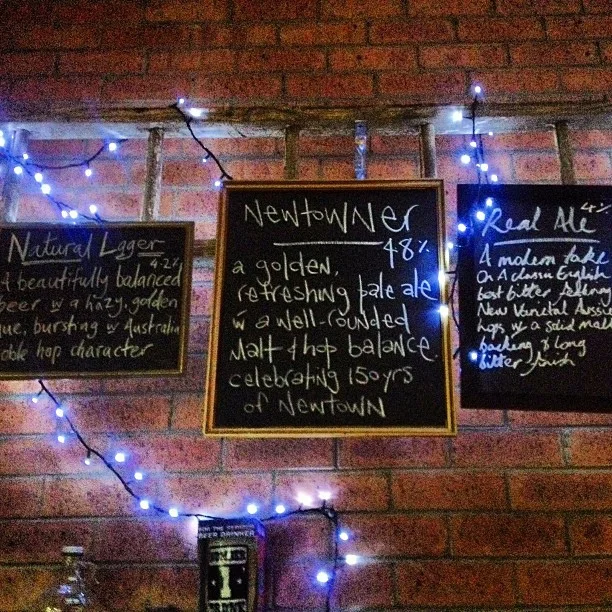 Natural Lager
4.2%
A beautifully balanced
beer w a hazy, golden
hue, bursting w Australian
noble hop character
Newtowner
4.8%
a golden,
refreshing pale ale
w a well-rounded
malt & hop balance.
celebrating 150yrs
of Newtown
Real Ale
4%
A modern take
On A classic English
best bitter
New Varietal Aussie
hops w a solid malt
backing & long
bitter finish
FOR THE SERIOUS
BEER DRINKER
1